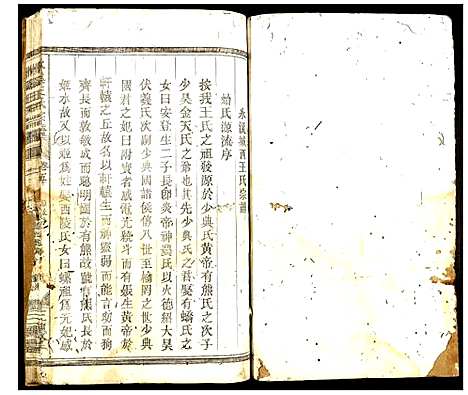 永
城西王氏宗譜
蟜氏源流序
按我王氏之頑發源於少典氏黄帝有熊氏之次子
少昊金天氏之裔也其先少典氏之君娶有蟜氏之
女曰安登生二子長即炎帝神農氏以火德紹大昊
伏羲氏次嗣少典國諸侯傳八世至榆罔之時少典
國君之妃曰附寶者感電光繞斗而有娠生黄帝於
軒轅之丘故名曰軒轅生而靈弱而能言幼而狥
齊長而敦敏成而聰明國於有熊號有熊氏長於
姬水故又以姬為姓娶西陵氏女曰嫘祖為元妃感